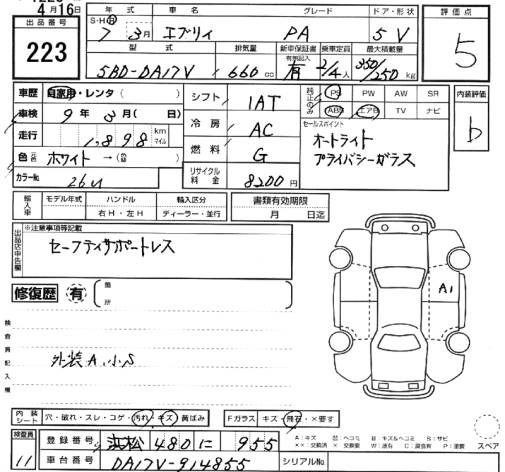 4月16日
出品番号
223
年式 車名 グレード ドア・形状
S・H・R 7年 3月 エブリィ PA 5V
型式 排気量 新車保証書 乗車定員 最大積載量
有無記入
5BD-DA17V 660cc 有 2/4人 350/250kg
評価点
5
車歴 自家用・レンタ( )
車検 9年 3月( 日)
走行 1,898 km マイル
色(元色) ホワイト→( )
カラーNo. 26U
シフト IAT
冷房 AC
燃料 G
リサイクル料金 8200円
純正のみ PS PW AW SR
ABS エアB TV ナビ
セールスポイント
オートライト
プライバシーガラス
内装評価
b
輸入車 モデル年式 ハンドル 輸入区分
右H・左H ディーラー・並行
書類有効期限
月 日迄
出品店申告欄
※注意事項等記載
セーフティサポートレス
修復歴 有 箇所
検査員記入欄
外装A.小S
A1
内装シート 穴・破れ・スレ・コゲ・汚れ・キズ・黄ばみ Fガラス キズ・飛石・×要す
検査員
11
登録番号 浜松 480 に 955
車台番号 DA17V-914855 シリアルNo.
A:キズ U:ヘコミ B:キズ&ヘコミ S:サビ
××:交換済 ×:交換要 W:波有 C:腐食有 P:塗要
スペア